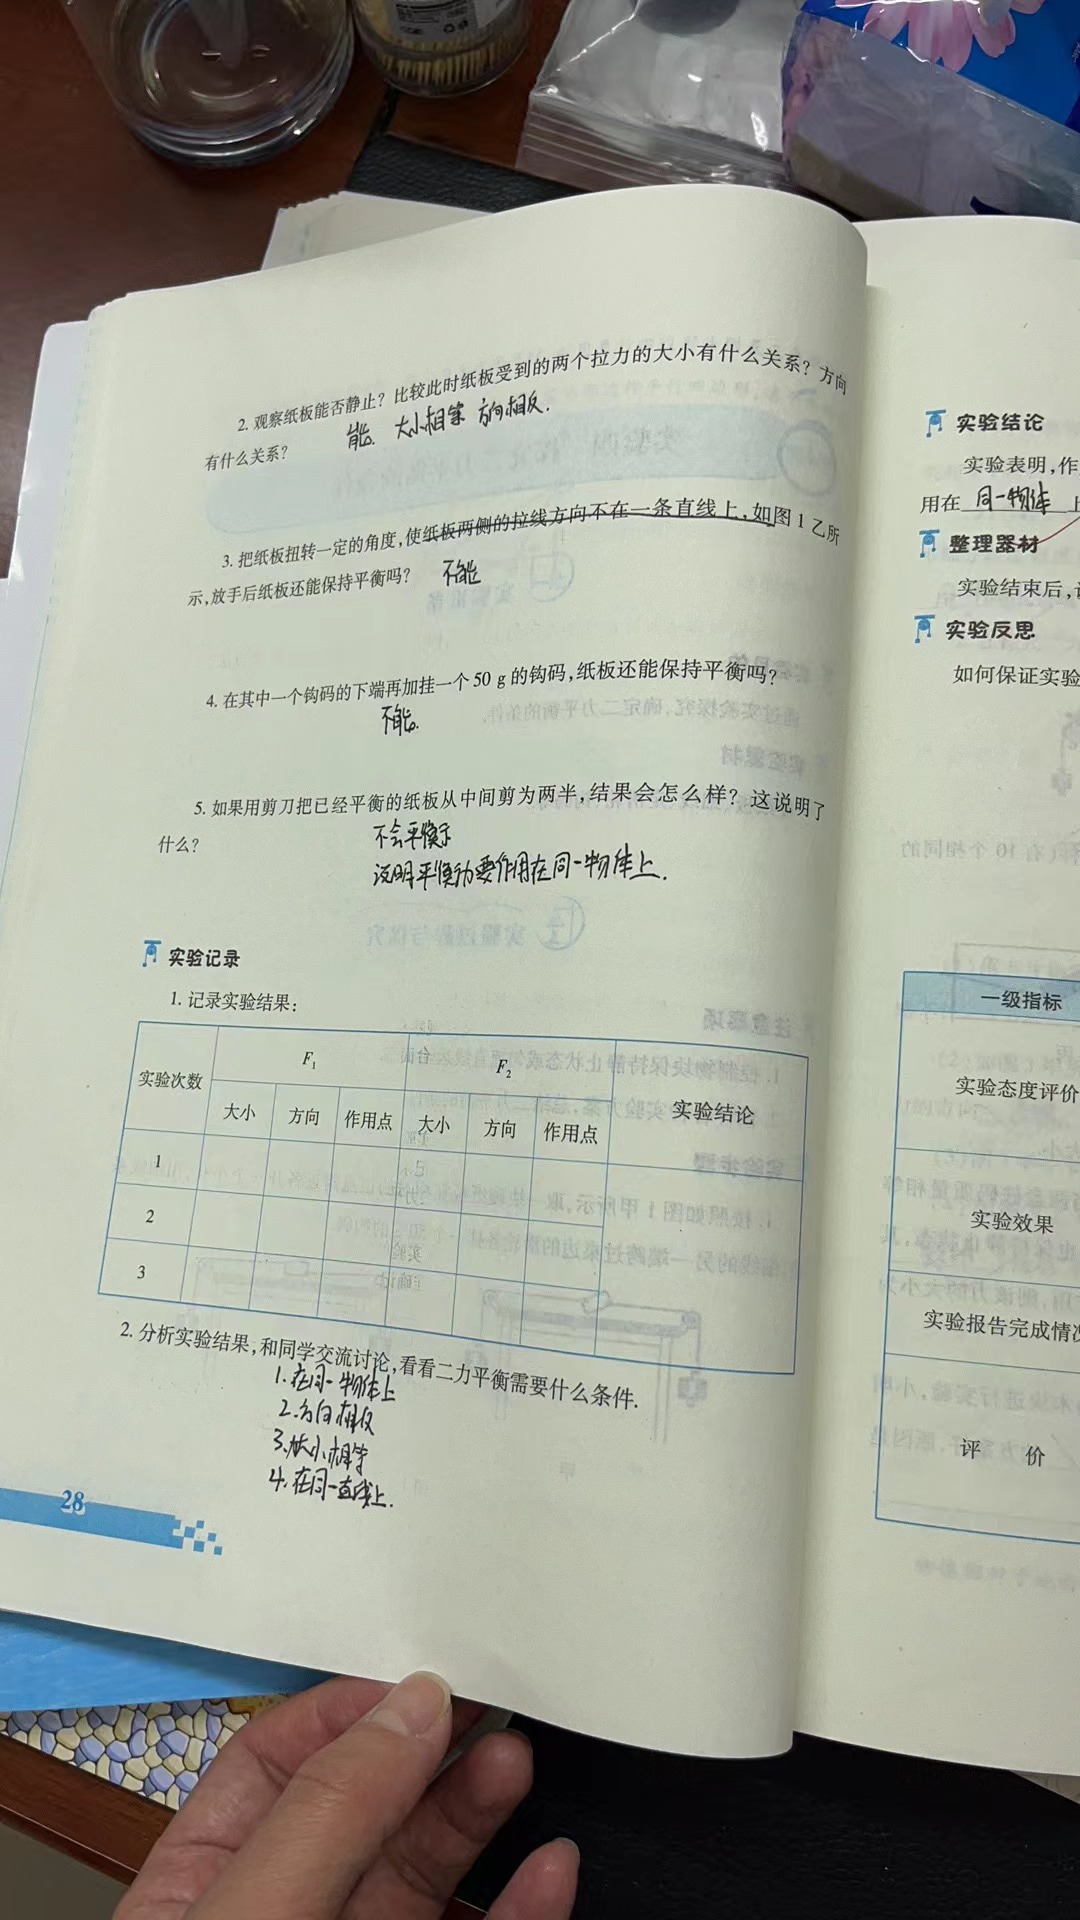 2. 观察纸板能否静止？比较此时纸板受到的两个拉力的大小有什么关系？方向
有什么关系？
能。大小相等 方向相反.
3. 把纸板扭转一定的角度,使纸板两侧的拉线方向不在一条直线上,如图1乙所
示,放手后纸板还能保持平衡吗？ 不能
4. 在其中一个钩码的下端再加挂一个50 g的钩码,纸板还能保持平衡吗？
不能.
5. 如果用剪刀把已经平衡的纸板从中间剪为两半,结果会怎么样？这说明了
什么？
不会平衡
说明平衡力要作用在同一物体上.
实验记录
1. 记录实验结果:
实验次数 F₁ F₂ 实验结论
大小 方向 作用点 大小 方向 作用点
1
2
3
2. 分析实验结果,和同学交流讨论,看看二力平衡需要什么条件.
1.在同一物体上
2.方向相反
3.大小相等
4.在同一直线上.
28
实验结论
实验表明,作
用在 同一物体 上
整理器材
实验结束后,
实验反思
如何保证实验
一级指标
实验态度评价
实验效果
实验报告完成情况
评 价